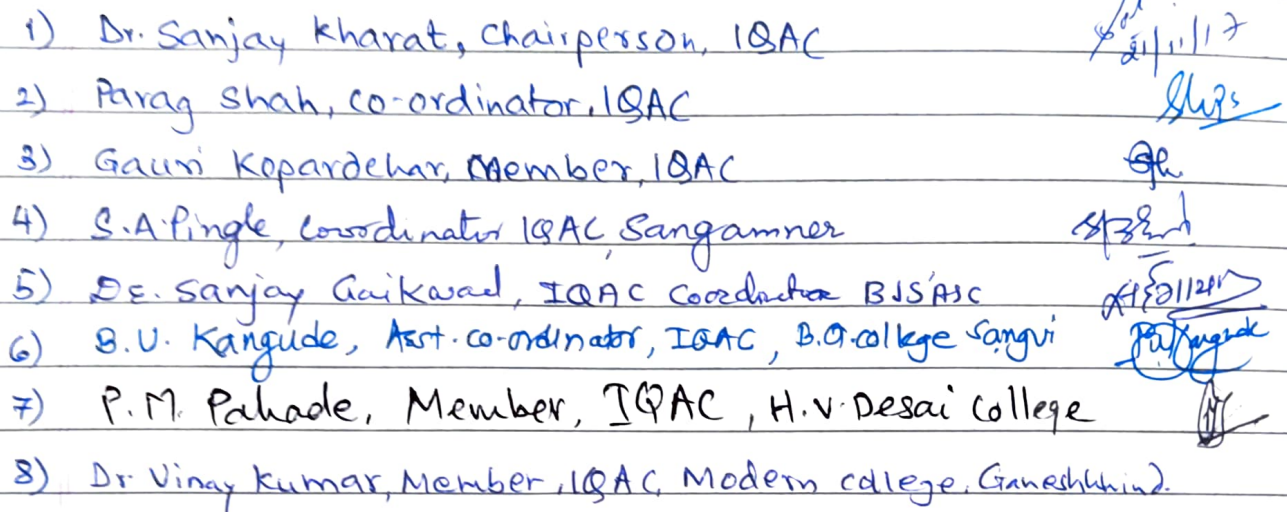 1) Dr. Sanjay Kharat, Chairperson, IQAC 21/11/17
2) Parag Shah, co-ordinator, IQAC
3) Gauri Kopardekar, Member, IQAC
4) S.A. Pingle, Coordinator IQAC, Sangamner
5) Dr. Sanjay Gaikwad, IQAC Coordinator BJS ASC
6) B.U. Kangude, Asst. co-ordinator, IQAC, B.G. college Sangvi
7) P.M. Pahade, Member, IQAC, H.V. Desai College
8) Dr Vinay Kumar, Member, IQAC, Modern college, Ganeshkhind.